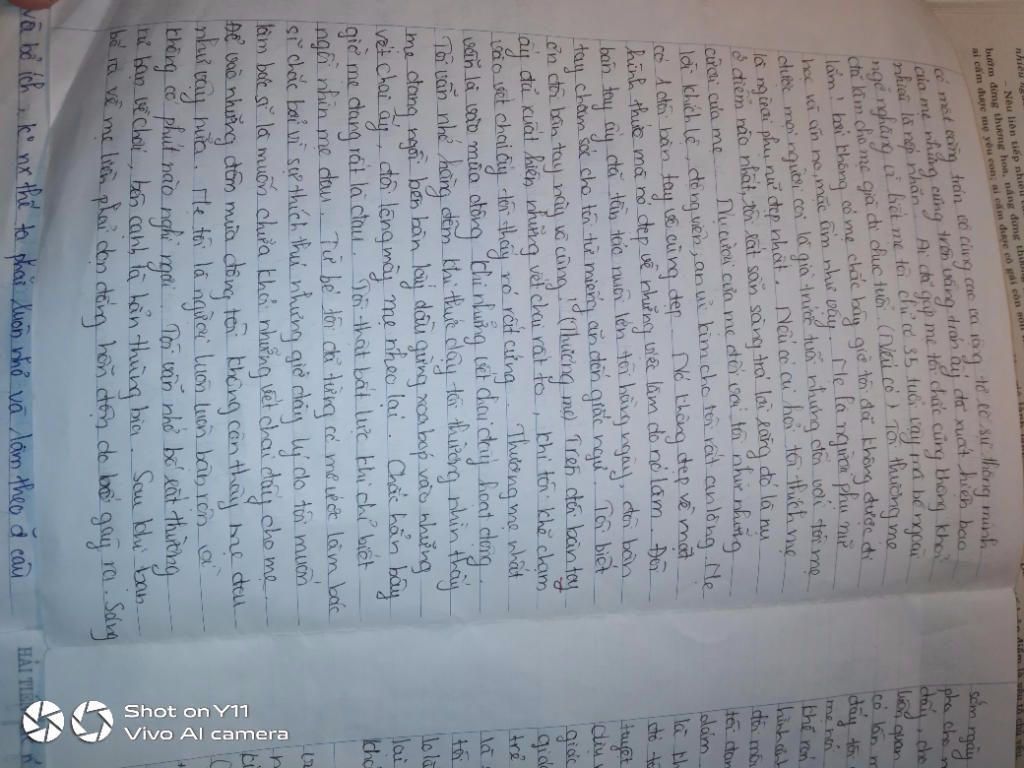 -Nếu liên tiếp nhiều
hươm đang thương hoa, nắng đang
ai cấm được mẹ yêu con, ai cấm được cô gái còn
có một vầng trán cô cùng cao cả rộng tỏ rõ sự thông minh
của mẹ nhưng cũng trên vầng trán ấy đã xuất hiện bao
nhiêu là nếp nhăn. Ai đã gặp mẹ tôi chắc cũng không khỏi
ngỡ ngàng vì biết mẹ tôi chỉ có 33 tuổi vậy mà bề ngoài
đã làm cho mẹ già đi chục tuổi. (Nói có) Tôi thương mẹ
lắm, bởi không có mẹ chắc bây giờ tôi đã không được đi
học và ăn no, mặc ấm như vậy. Mẹ là người phụ nữ
được mọi người coi là già trước tuổi nhưng đối với tôi mẹ
là người phụ nữ đẹp nhất. Nếu có ai hỏi tôi thích mẹ
ở điểm nào nhất, tôi rất sẵn sàng trả lời rằng đó là nụ
cười của mẹ. Nụ cười của mẹ đối với tôi như những
lời khích lệ, động viên, an ủi làm cho tôi rất an lòng. Mẹ
có 1 đôi bàn tay vô cùng đẹp. Nó không đẹp về mặt
hình thức mà nó đẹp về những việc làm do nó làm. Đôi
bàn tay ấy đã tần tảo nuôi lớn tôi hằng ngày, đôi bàn
tay chăm sóc cho tôi từ miếng ăn đến giấc ngủ. Tôi biết
ơn đôi bàn tay này vô cùng. (Thương mẹ) Trên đôi bàn tay
ấy đã xuất hiện những vết chai rất to, khi tôi khẽ chạm
vào vết chai ấy tôi thấy nó rất cứng. Thương mẹ nhất
vẫn là vào mùa đông khi những vết chai đấy hoạt động.
Tôi vẫn nhớ hằng đêm khi thức dậy tôi thường nhìn thấy
mẹ đang ngồi bên bàn lấy dầu gừng xoa bóp vào những
vết chai ấy, đôi lông mày mẹ nheo lại. Chắc hẳn bây
giờ mẹ đang rất là đau. Tôi thật bất lực khi chỉ biết
ngồi nhìn mẹ đau. Từ bé tôi đã từng có mơ ước làm bác
sĩ chắc bởi vì sự thích thú nhưng giờ đây lý do tôi muốn
làm bác sĩ là muốn chữa khỏi những vết chai đấy cho mẹ
để vào những đêm mùa đông tôi không còn thấy mẹ đau
như vậy nữa. Mẹ tôi là người luôn luôn bận rộn
không có phút nào nghỉ ngơi. Tôi vẫn nhớ bố rất thường
rủ bạn về chơi, bên cạnh là hẳn thùng bia. Sau khi bạn
bố ra về mẹ liền phải dọn đống hỗn độn do bố gây ra. Sáng
và bổ ích, vì nx thế ta phải luôn nhớ và làm theo 2 câu
sớm ngày
HẢI TIẾN
Shot on Y11
Vivo AI camera